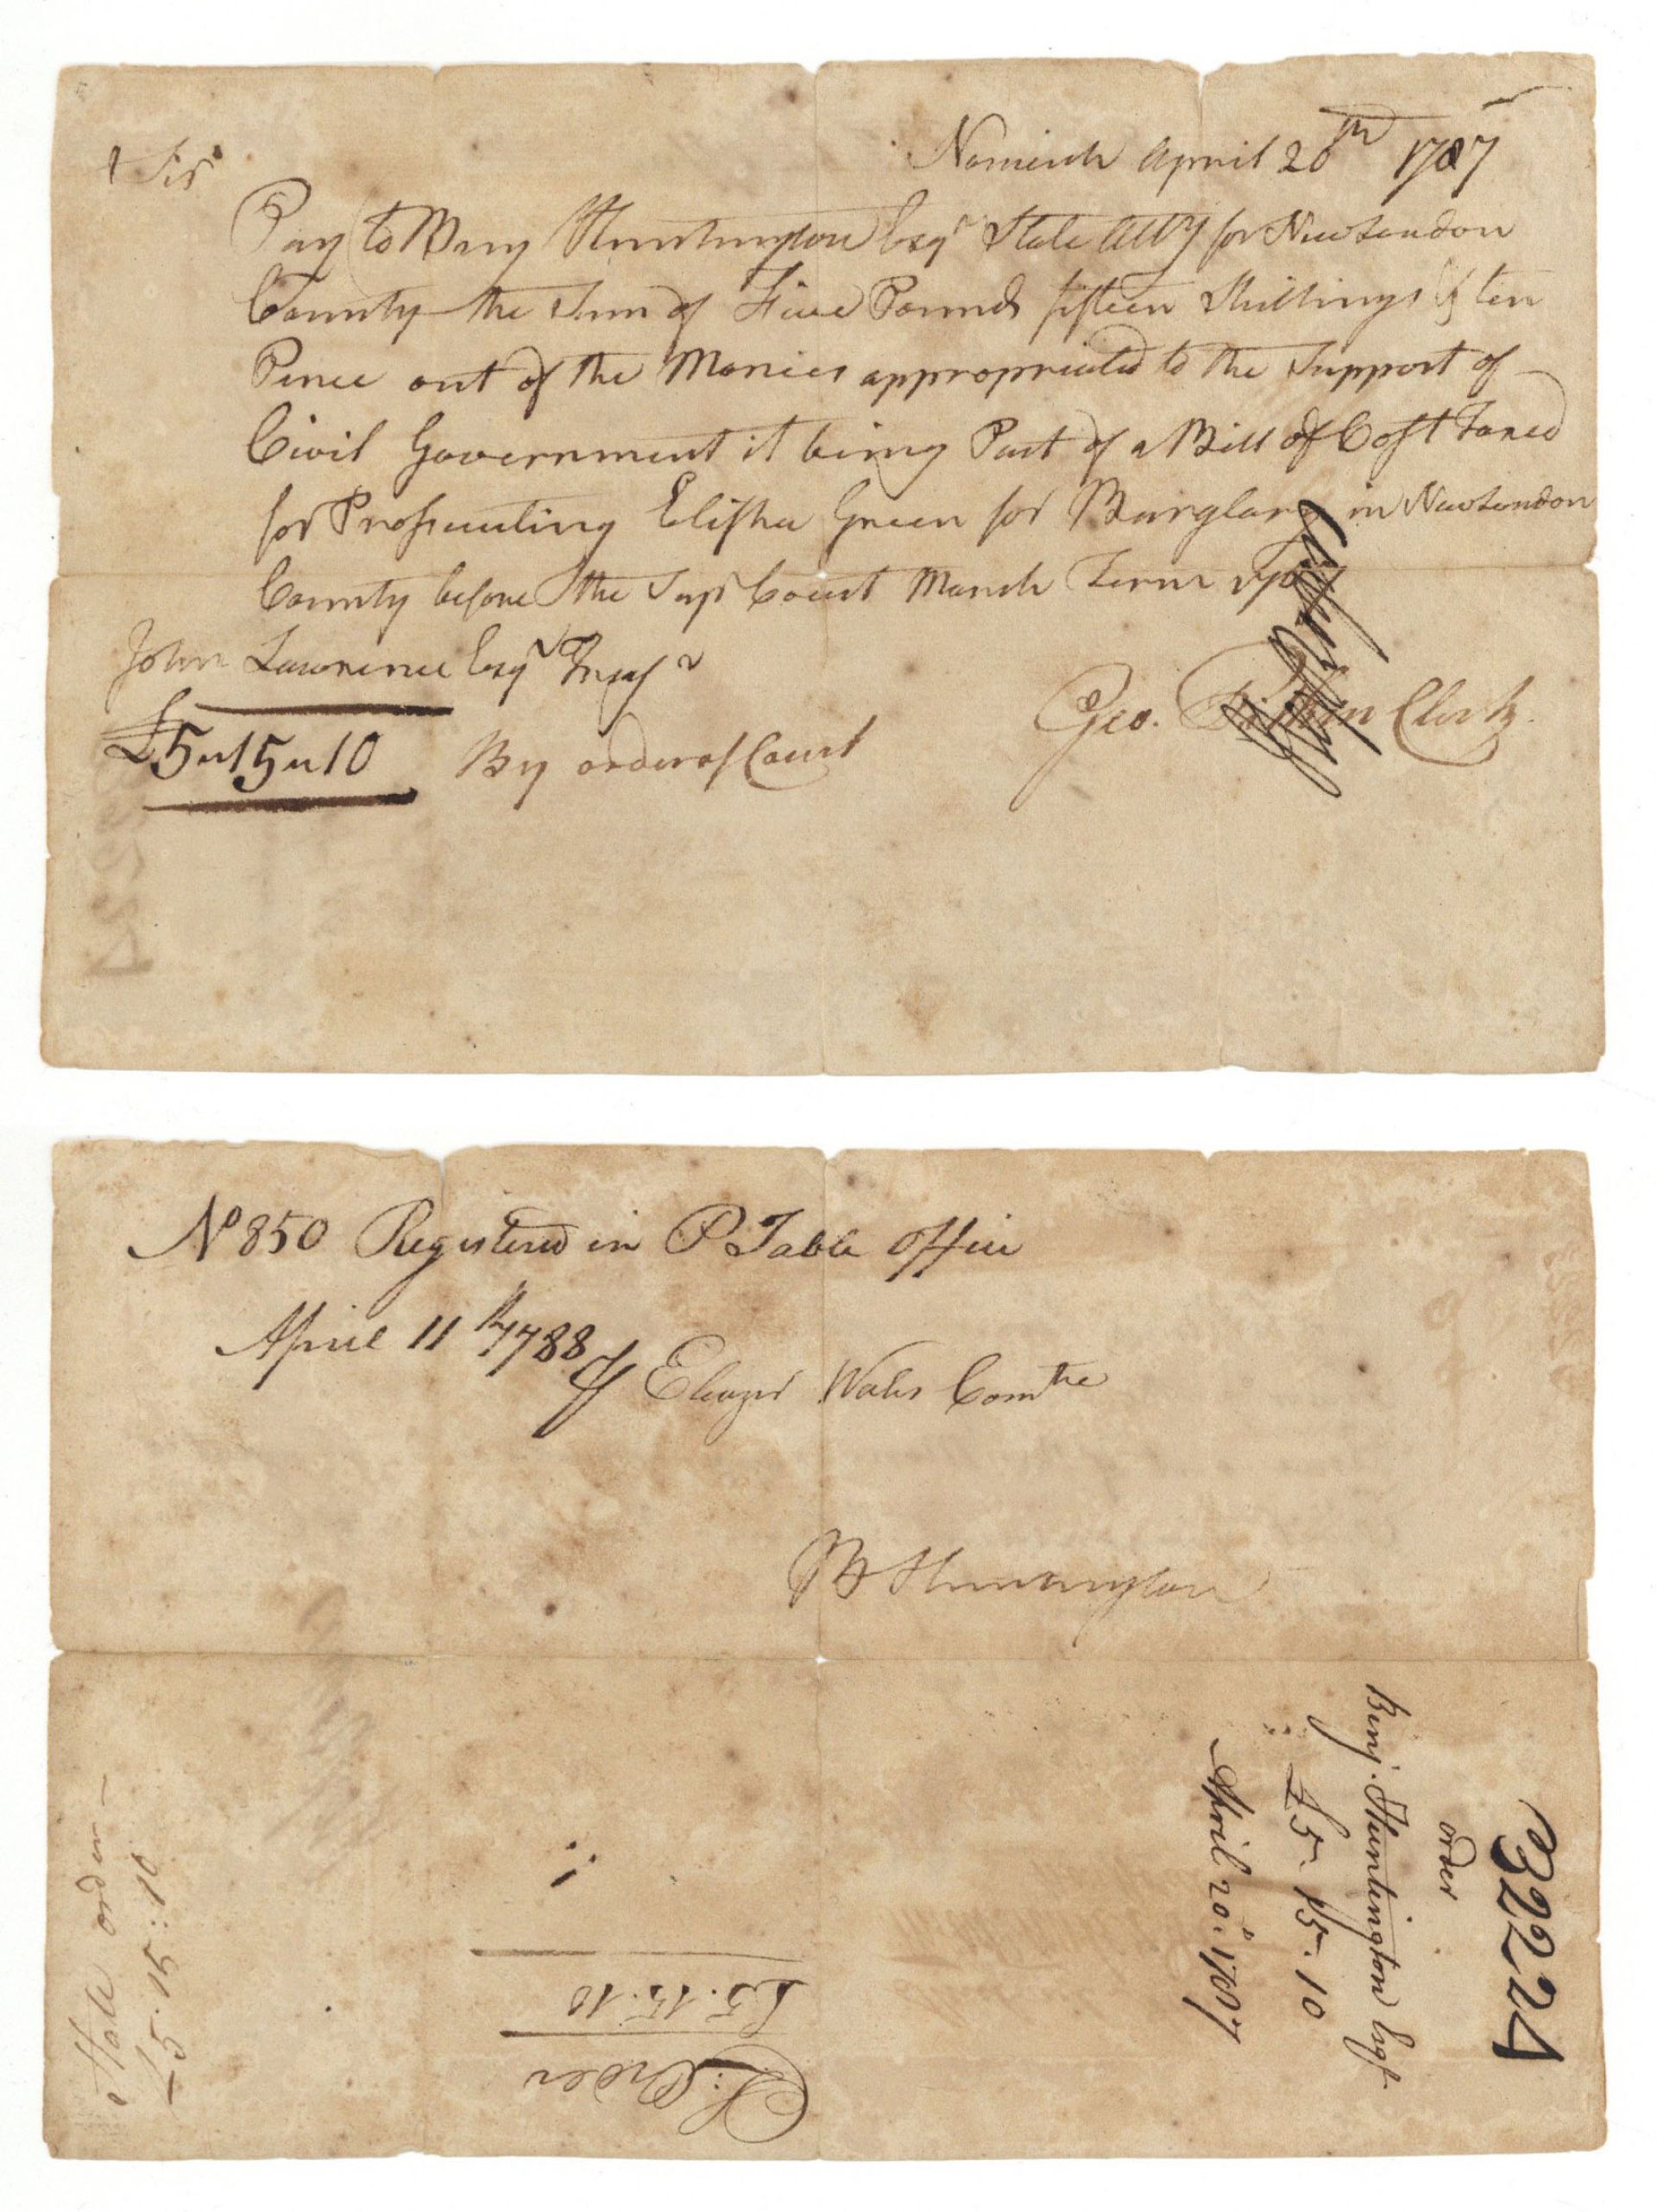 Sir
Norwich April 20th 1787
Pay to Benj Huntington Esqr State Atty for New London
County the Sum of Five Pounds fifteen Shillings & ten
Pence out of the Monies appropriated to the Support of
Civil Government it being Part of a Bill of Cost Taxed
for Prosecuting Elisha Green for Burglary in New London
County before the Supr Court March Term
John Lawrence Esqr Treasr
£5〃15〃10
By order of Court
Geo. Pitkin Clerk.
No 850 Registered in P. Table Office
April 11th 1788
Eleazr Wales Comtee
B Huntington
32224
order
Benj. Huntington Esqr
£5. 15. 10
April 20. 1787
Order
£5. 15. 10
State order
£5. 15: 10